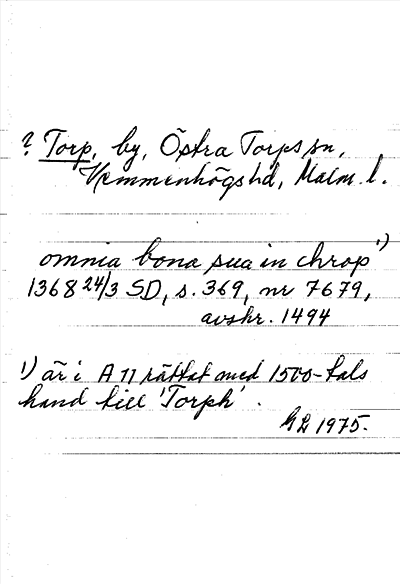 ? Torp, by, Östra Torps sn,
Vemmenhögs hd, Malm. l.
omnia bona sua in chrop 1)
1368 24/3 SD, s. 369, nr 7679,
avskr. 1494
1) är i A 71 rättat med 1500-tals
hand till 'Torph'.
GL 1975.